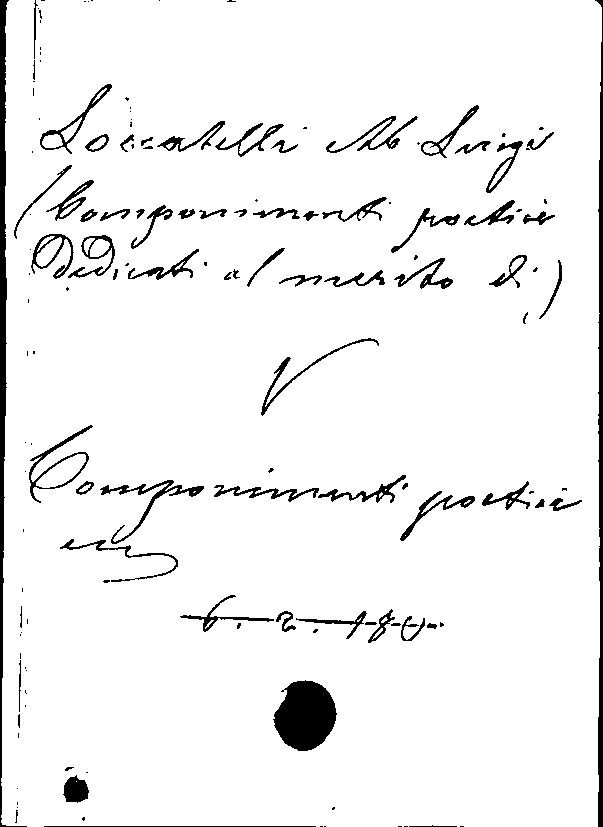 Loccatelli Ab. Luigi
(Componimenti poetici
Dedicati al merito di)
V
Componimenti poetici
ecc
6. 2. 180